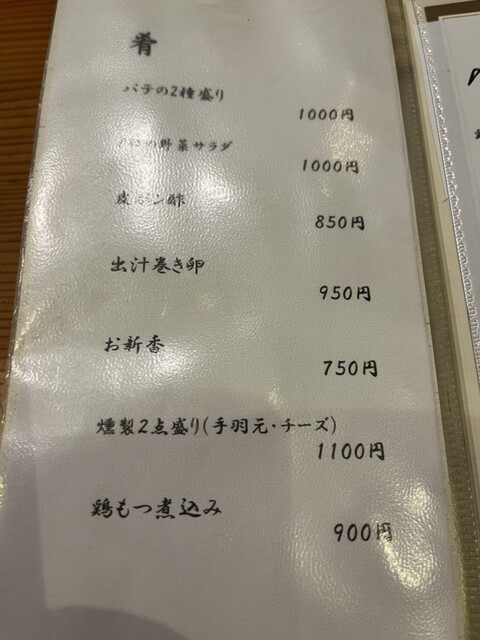 肴
パテの2種盛り
1000円
野菜サラダ
1000円
皮ポン酢
850円
出汁巻き卵
950円
お新香
750円
燻製2点盛り(手羽元・チーズ)
1100円
鶏もつ煮込み
900円